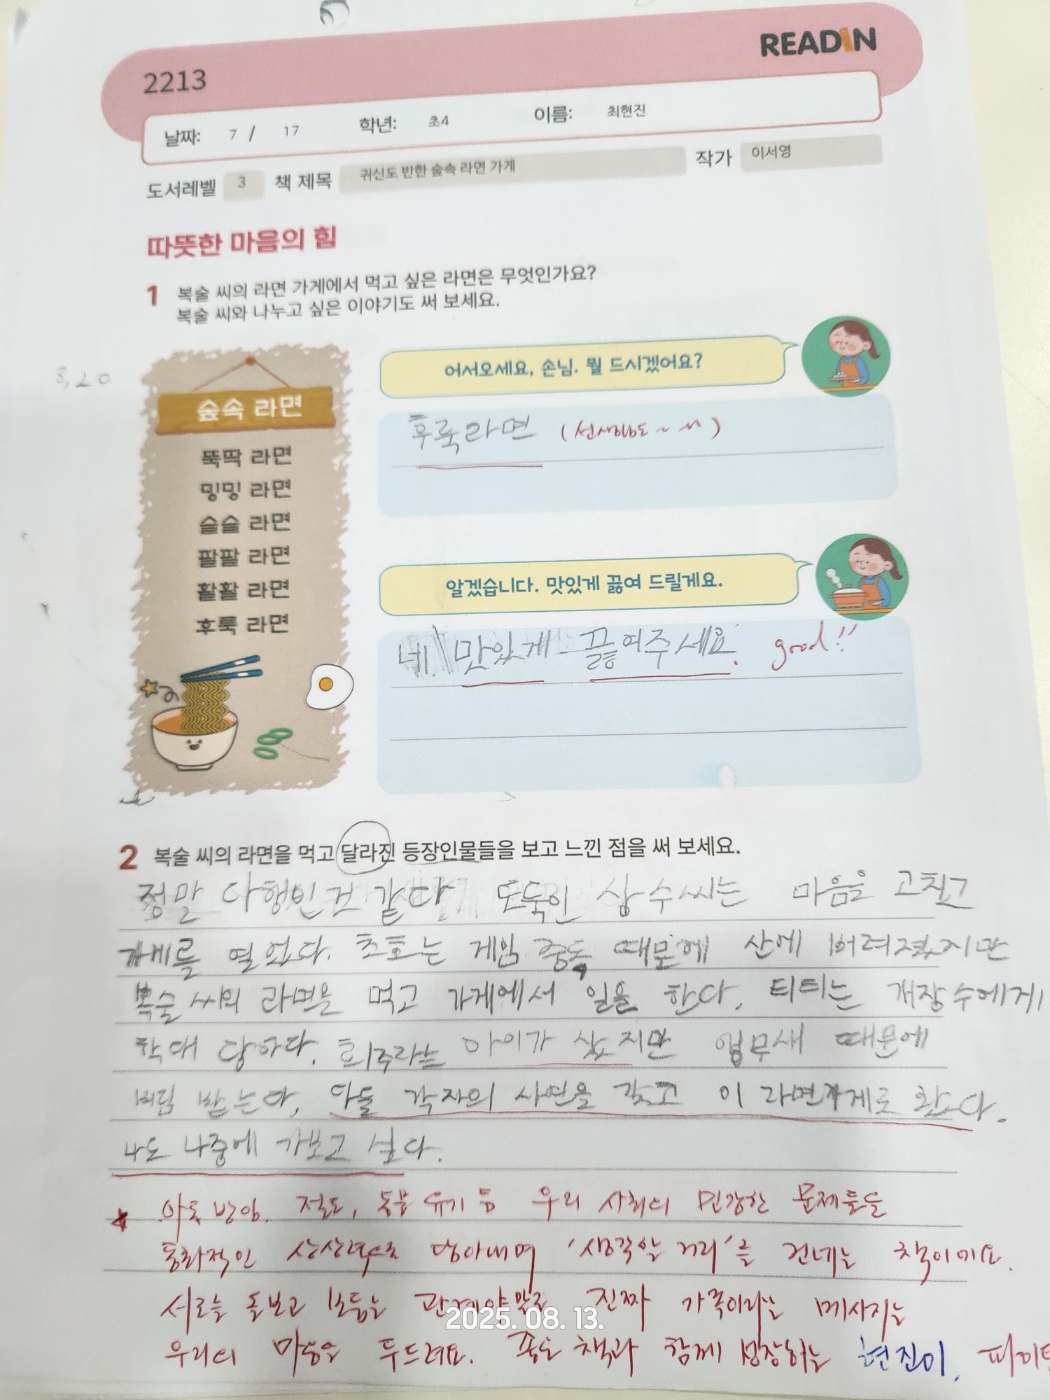 READIN
2213
날짜: 7 / 17 학년: 초4 이름: 최현진
도서레벨 3 책 제목 귀신도 반한 숲속 라면 가게 작가 이서영
따뜻한 마음의 힘
1 복술 씨의 라면 가게에서 먹고 싶은 라면은 무엇인가요?
복술 씨와 나누고 싶은 이야기도 써 보세요.
8,20
숲속 라면
뚝딱 라면
밍밍 라면
슬슬 라면
팔팔 라면
활활 라면
후룩 라면
어서오세요, 손님. 뭘 드시겠어요?
후룩라면 (선생님도~)
알겠습니다. 맛있게 끓여 드릴게요.
네 맛있게 끓여주세요. good!!
2 복술 씨의 라면을 먹고 달라진 등장인물들을 보고 느낀 점을 써 보세요.
정말 다행인 것 같다 도둑인 상수씨는 마음을 고치고
가게를 열었다. 초호는 게임 중독 때문에 산에 버려졌지만
복술 씨의 라면을 먹고 가게에서 일을 한다. 티티는 개장수에게
학대 당하다. 희주라는 아이가 샀지만 앵무새 때문에
버림 받는다. 다들 각자의 사연을 갖고 이 라면가게로 왔다.
나도 나중에 가보고 싶다.
아동 방임, 절도, 동물 유기 등 우리 사회의 민감한 문제들을
동화적인 상상력으로 담아내며 '생각할 거리'를 건네는 책이에요.
서로를 돌보고 보듬는 관계야말로 진짜 가족이라는 메시지는
우리의 마음을 두드려요. 좋은 책과 함께 성장하는 현진이,
2025. 08. 13.